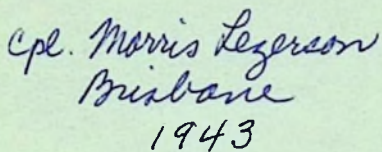 Cpl. Morris Legerson
Brisbane
1943